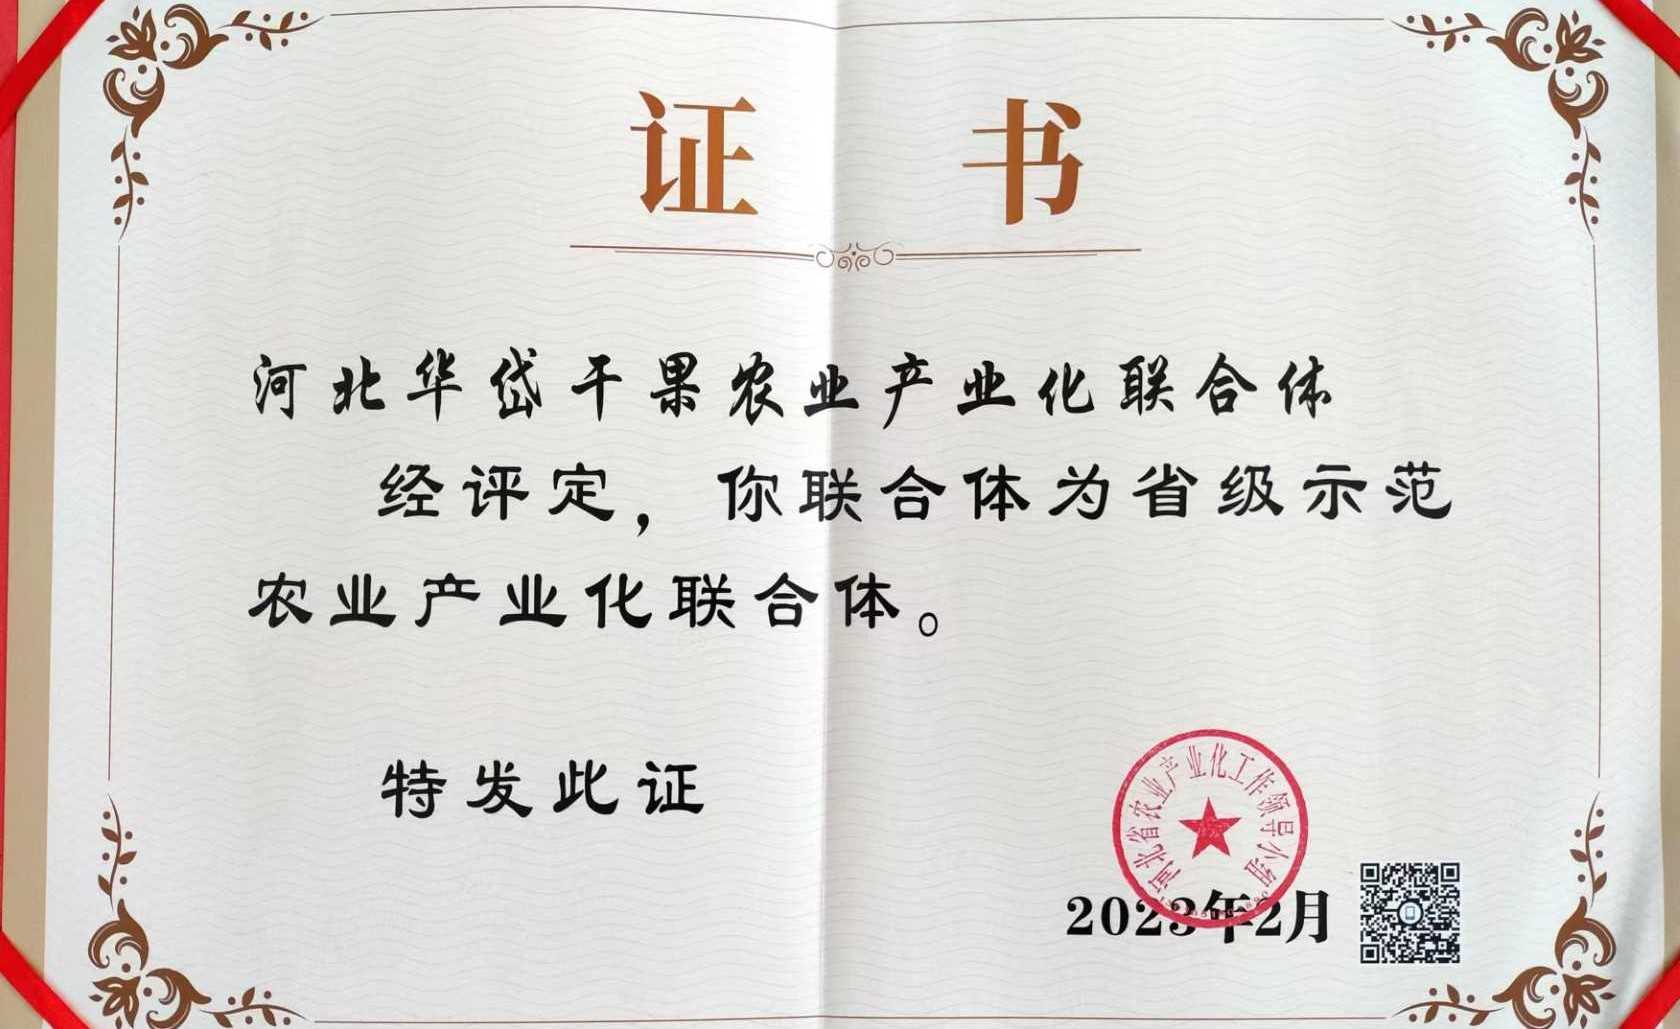 证书
河北华岱干果农业产业化联合体
经评定，你联合体为省级示范
农业产业化联合体。
特发此证
河北省农业产业化工作领导小组
2023年2月